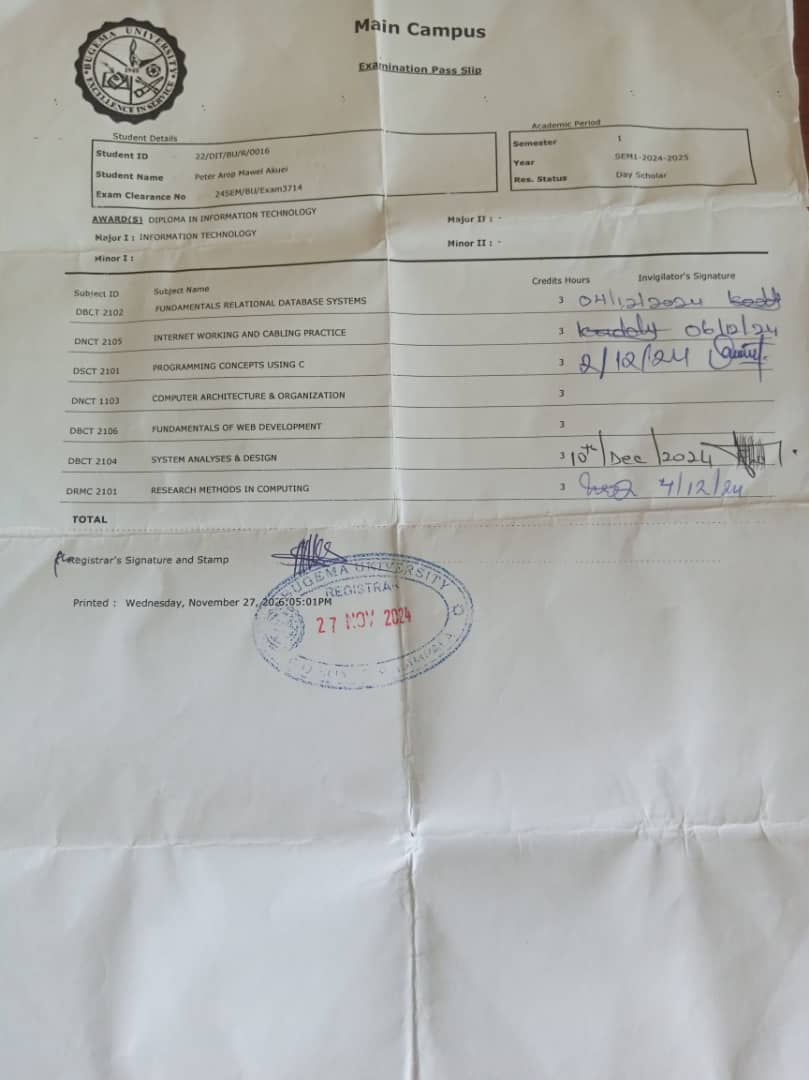 BUGEMA UNIVERSITY
1948
EXCELLENCE IN SERVICE
Main Campus
Examination Pass Slip
Student Details
Student ID 22/DIT/BU/R/0016
Student Name Peter Arop Mawel Akuei
Exam Clearance No 24SEM/BU/Exam3714
Academic Period
Semester 1
Year SEM1-2024-2025
Res. Status Day Scholar
AWARD(S) DIPLOMA IN INFORMATION TECHNOLOGY
Major I : INFORMATION TECHNOLOGY
Minor I :
Major II : -
Minor II : -
Subject ID Subject Name Credits Hours Invigilator's Signature
DBCT 2102 FUNDAMENTALS RELATIONAL DATABASE SYSTEMS 3 04/12/2024
DNCT 2105 INTERNET WORKING AND CABLING PRACTICE 3 06/12/24
DSCT 2101 PROGRAMMING CONCEPTS USING C 3 2/12/24
DNCT 1103 COMPUTER ARCHITECTURE & ORGANIZATION 3
DBCT 2106 FUNDAMENTALS OF WEB DEVELOPMENT 3
DBCT 2104 SYSTEM ANALYSES & DESIGN 3 10th/Dec/2024
DRMC 2101 RESEARCH METHODS IN COMPUTING 3 4/12/24
TOTAL
Registrar's Signature and Stamp
BUGEMA UNIVERSITY
REGISTRAR
27 NOV 2024
Printed : Wednesday, November 27, 05:01PM